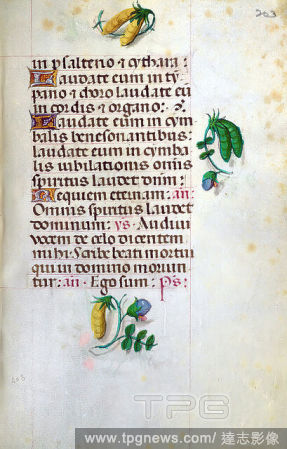 203
in psalterio & cythara:
Laudate eum in tym
pano & choro laudate eū
in cordis & organo:
Laudate eum in cym
balis benesonantibus:
laudate eum in cymba
lis iubilationis omis
spiritus laudet dnm:
Requiem eternam: an:
Omnis spiritus laudet
dominum: ys. Audiui
vocem de celo dicentem
mihi. Scribe beati mortui
qui in domino moriun
tur: an. Ego sum: Ps:
203
TPG
www.tpgnews.com/ 達志影像